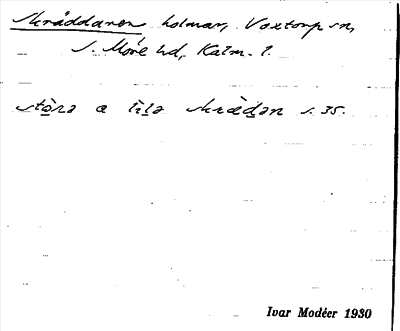 Skräddaren holmar, Voxtorp sn,
S. Möre hd, Kalm. l.
stò̱ra a lìḻa skræ̀ḏan s. 35.
Ivar Modéer 1930